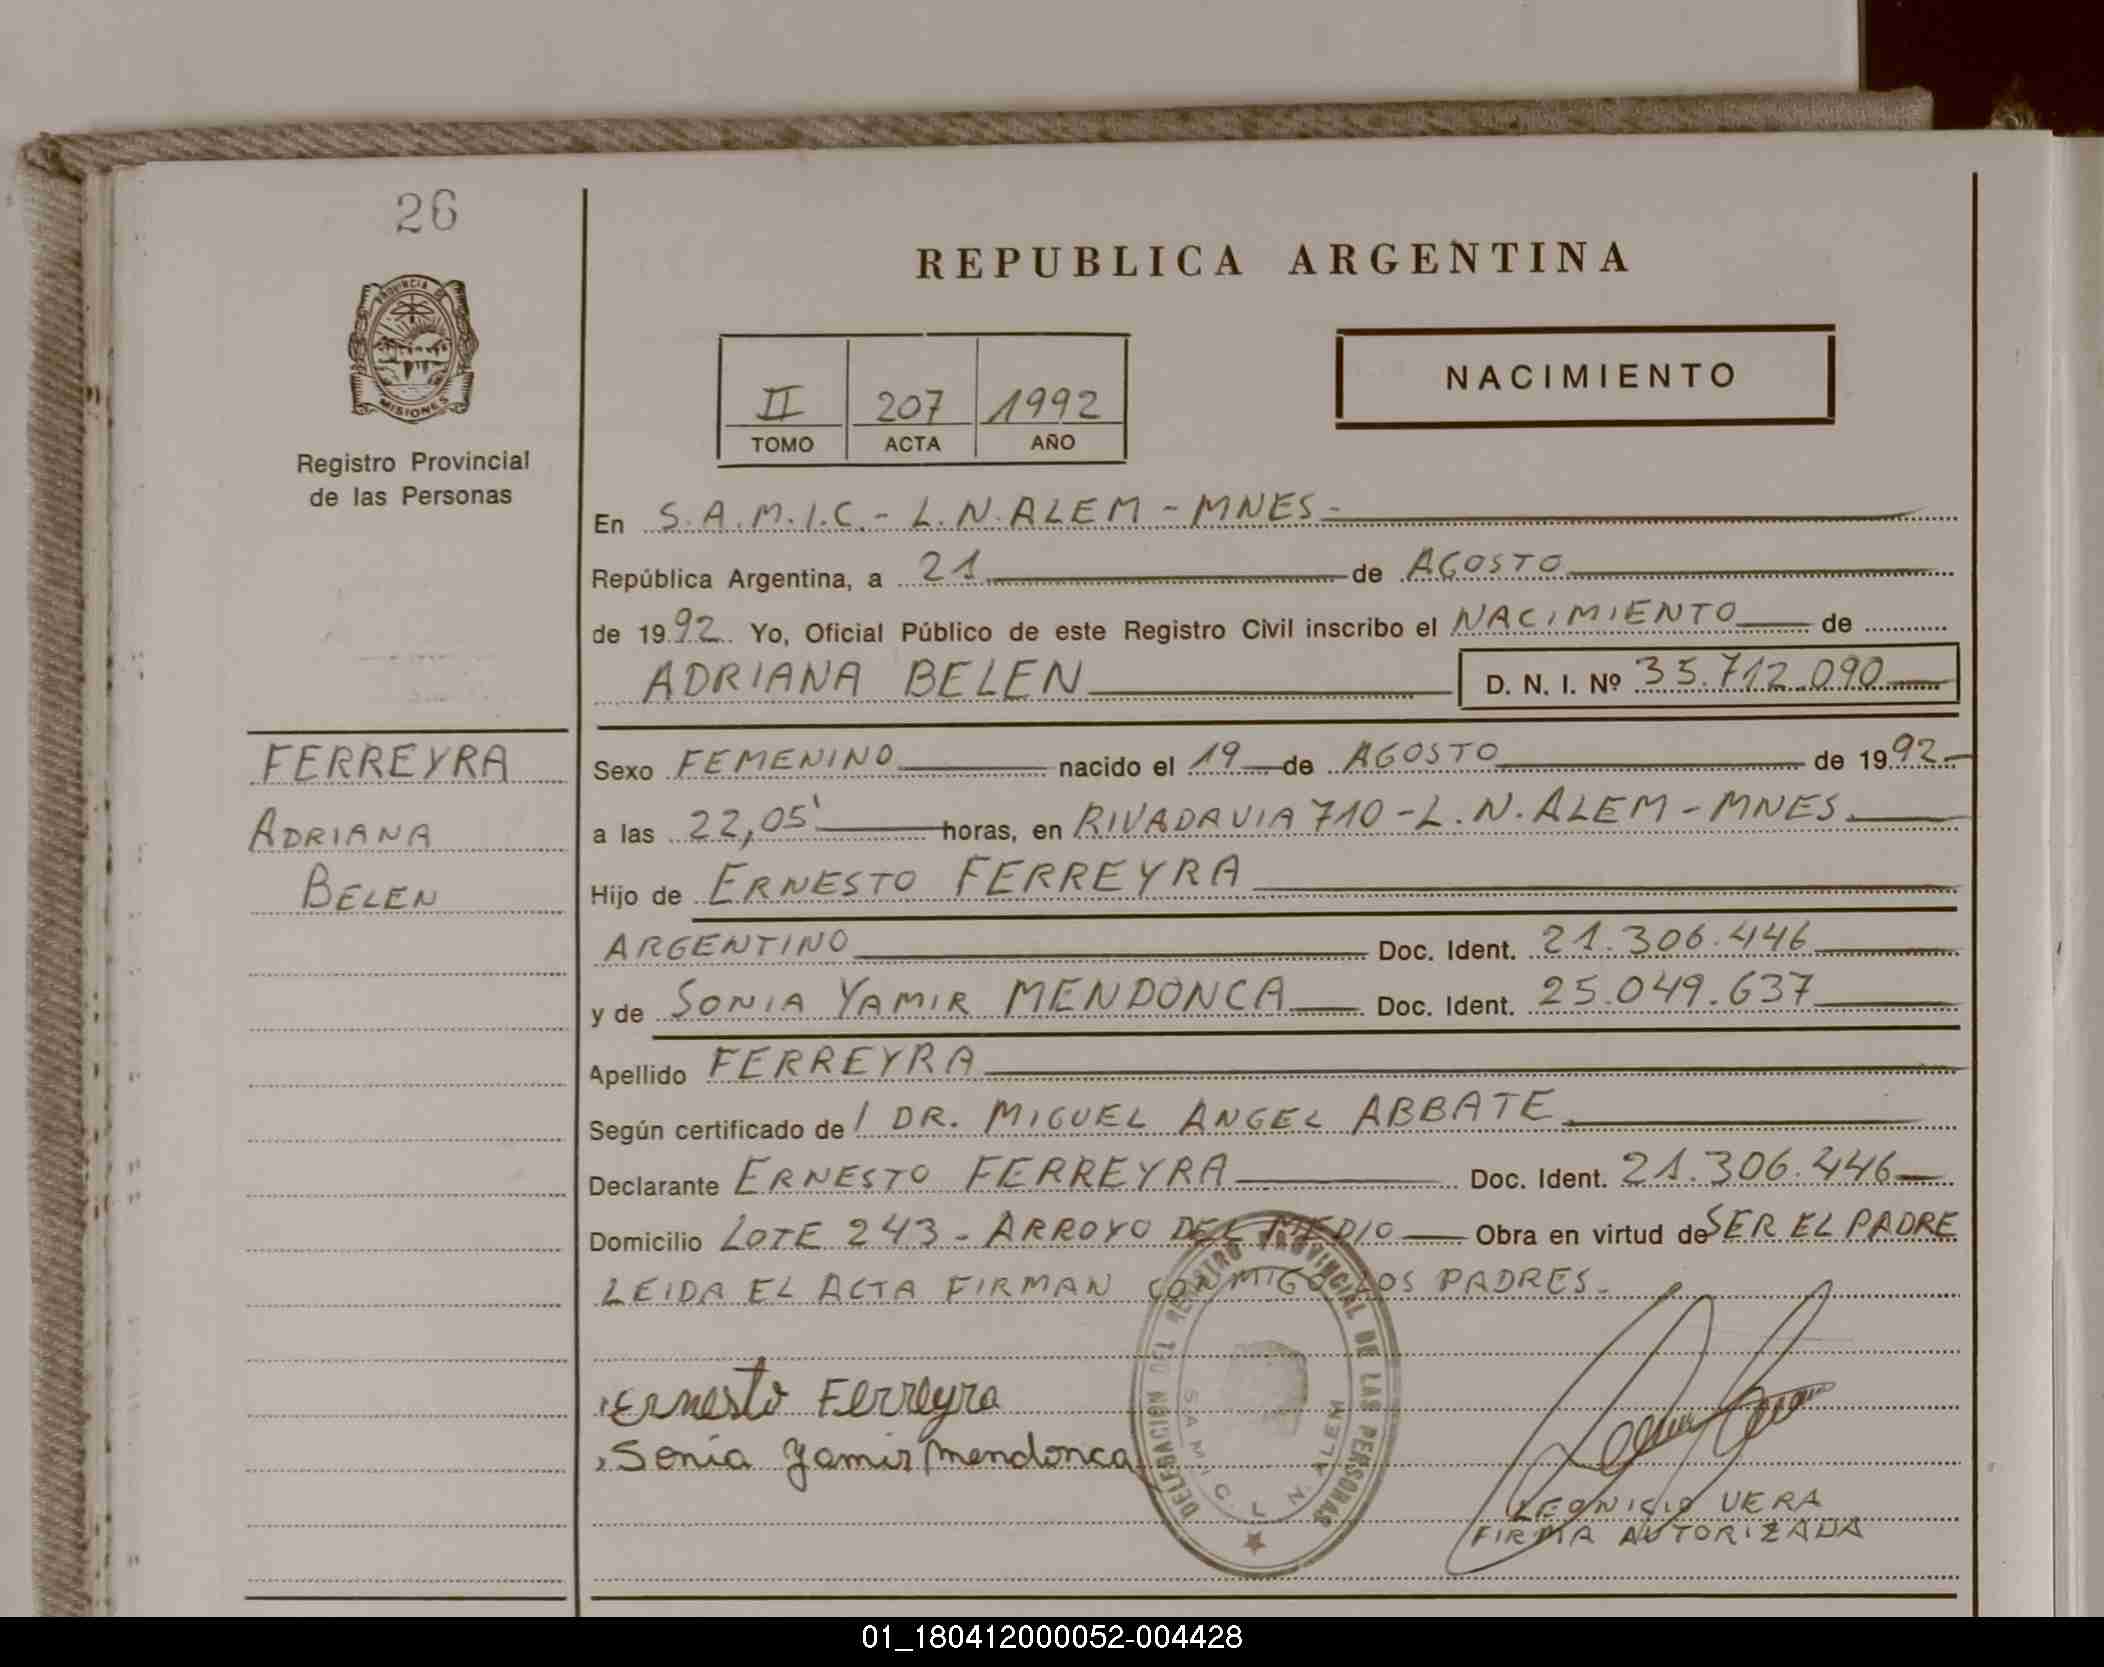 26
PROVINCIA DE
MISIONES
Registro Provincial
de las Personas
FERREYRA
ADRIANA
BELEN
REPUBLICA ARGENTINA
II 207 1992
TOMO ACTA AÑO
NACIMIENTO
En S.A.M.I.C.- L.N.ALEM - MNES-
República Argentina, a 21 de AGOSTO
de 1992. Yo, Oficial Público de este Registro Civil inscribo el NACIMIENTO de
ADRIANA BELEN D. N. I. Nº 35.712.090
Sexo FEMENINO nacido el 19 de AGOSTO de 1992
a las 22,05' horas, en RIVADAVIA 710 - L.N.ALEM - MNES.
Hijo de ERNESTO FERREYRA
ARGENTINO Doc. Ident. 21.306.446
y de SONIA YAMIR MENDONCA Doc. Ident. 25.049.637
Apellido FERREYRA
Según certificado de / DR. MIGUEL ANGEL ABBATE
Declarante ERNESTO FERREYRA Doc. Ident. 21.306.446
Domicilio LOTE 243 - ARROYO DEL MEDIO Obra en virtud de SER EL PADRE
LEIDA EL ACTA FIRMAN CONMIGO LOS PADRES.
Ernesto Ferreyra
Sonia Yamir Mendonca
DELEGACION DEL REGISTRO PROVINCIAL DE LAS PERSONAS
S.A.M.I.C. L.N. ALEM
LEONICIO VERA
FIRMA AUTORIZADA
01_180412000052-004428